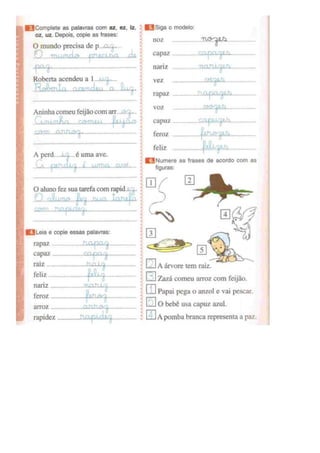 Complete as palavras com az, ez, iz,
oz, uz. Depois, copie as frases:
O mundo precisa de p az
O mundo precisa de
paz
Roberta acendeu a l uz
Roberta acendeu a luz
Aninha comeu feijão com arr oz
Aninha comeu feijão
com arroz
A perd iz é uma ave.
A perdiz é uma ave.
O aluno fez sua tarefa com rapid ez
O aluno fez sua tarefa
com rapidez
Leia e copie essas palavras:
rapaz rapaz
capaz capaz
raiz raiz
feliz feliz
nariz nariz
feroz feroz
arroz arroz
rapidez rapidez
Siga o modelo:
noz nozes
capaz capazes
nariz narizes
vez vezes
rapaz rapazes
voz vozes
capuz capuzes
feroz ferozes
feliz felizes
Numere as frases de acordo com as
figuras:
1
2
4
3
5
2 A árvore tem raiz.
3 Zazá comeu arroz com feijão.
1 Papai pega o anzol e vai pescar.
5 O bebê usa capuz azul.
4 A pomba branca representa a paz.